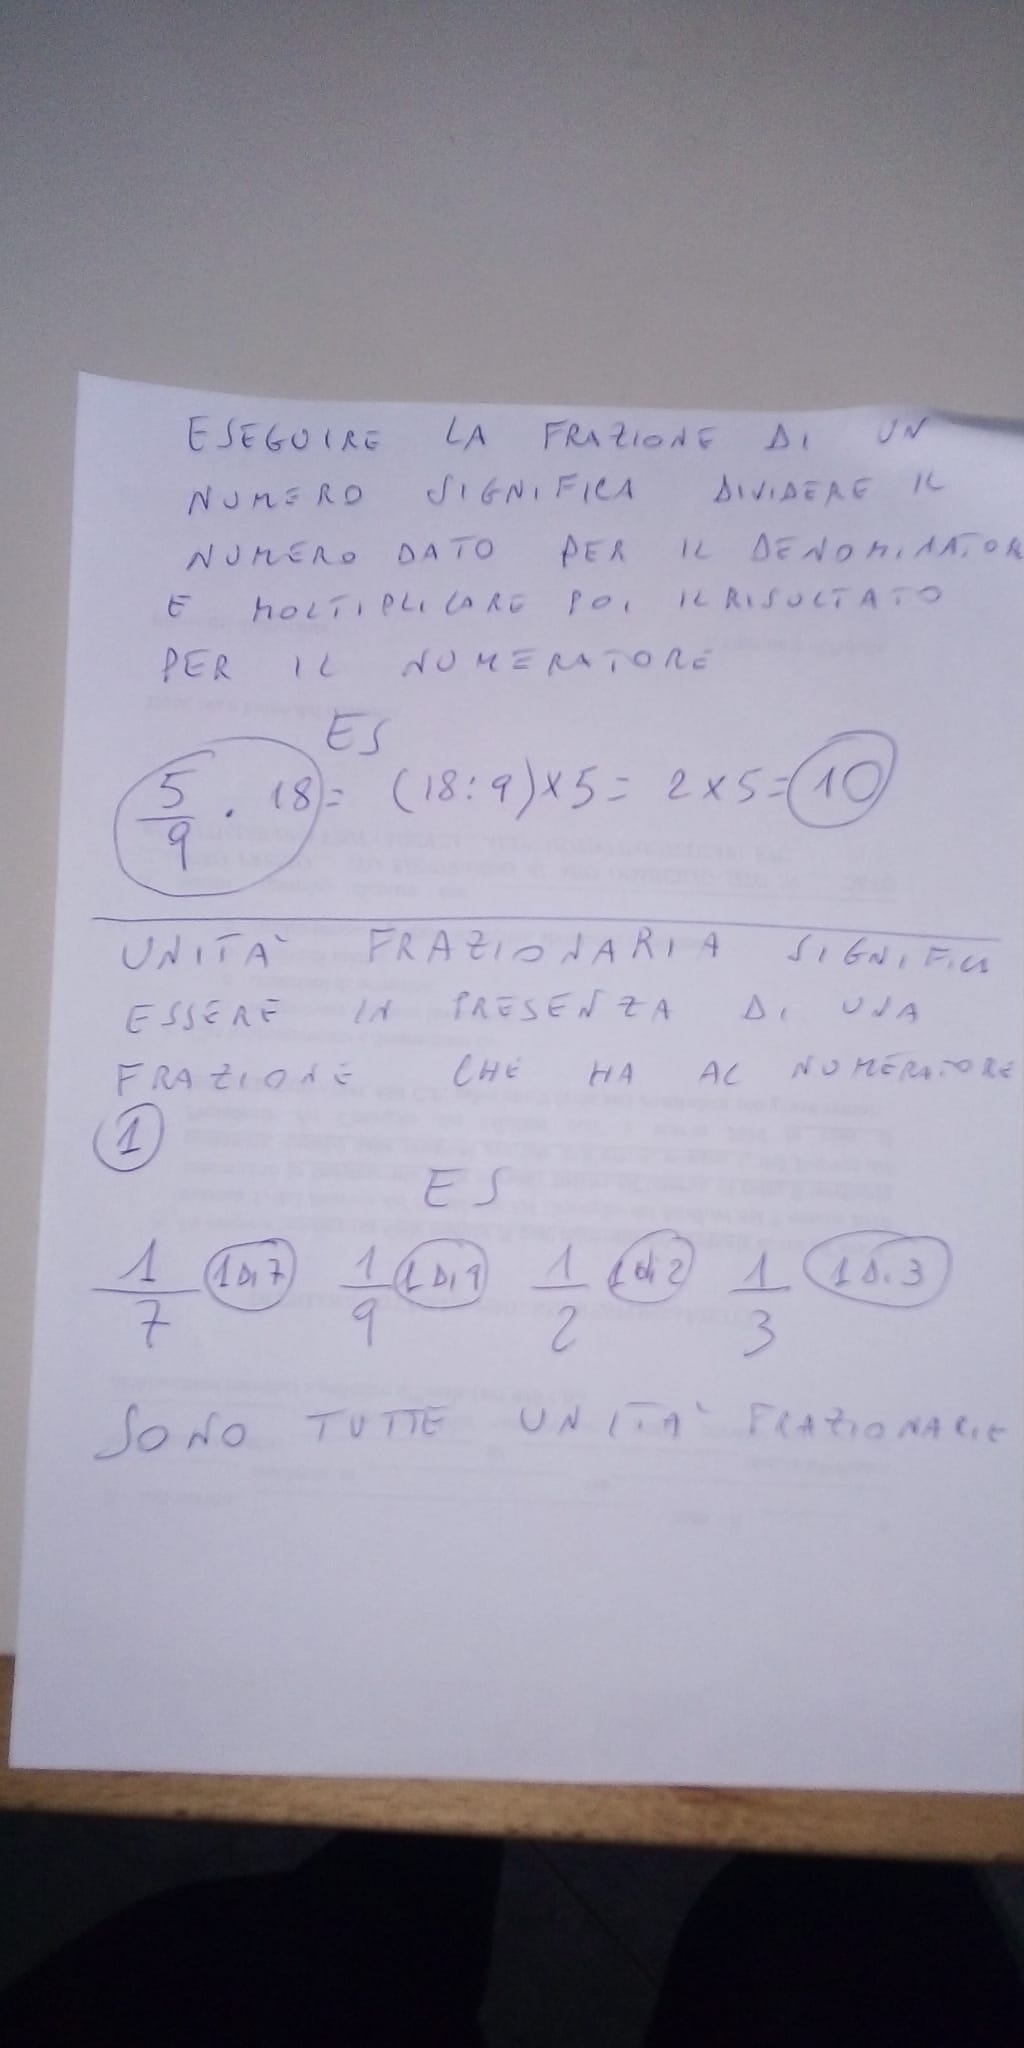 ESEGUIRE LA FRAZIONE DI UN
NUMERO SIGNIFICA DIVIDERE IL
NUMERO DATO PER IL DENOMINATOR
E MOLTIPLICARE POI IL RISULTATO
PER IL NUMERATORE
ES
5/9 . 18 = (18:9)x5= 2x5= 10
UNITA' FRAZIONARIA SIGNIFICA
ESSERE IN PRESENZA DI UNA
FRAZIONE CHE HA AL NUMERATORE
1
ES
1/7 1 DI 7 1/9 1 DI 9 1/2 1 di 2 1/3 1 DI 3
SONO TUTTE UNITA' FRAZIONARIE